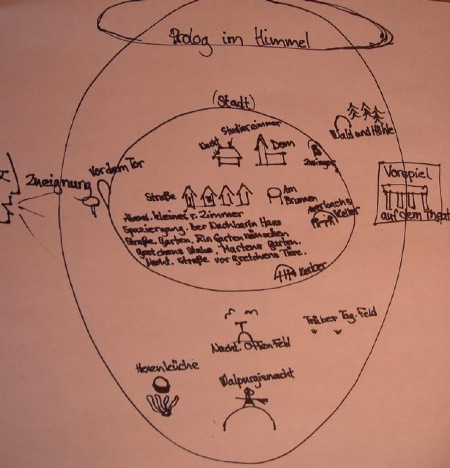 Prolog im Himmel
(Stadt)
Studierzimmer
Nacht
Dom
Zwinger
Wald und Höhle
Zueignung
Vor dem Tor
Vorspiel
auf dem Theat
Straße
Am
Brunnen
Auerbachs
Keller
Abend. kleines r. Zimmer
Spaziergang. Der Nachbarin Haus
Straße. Garten. Ein Gartenhäuschen
Gretchens Stube. Marthens Garten.
Nacht. Straße vor Gretchens Türe.
Kerker
Nacht. Offen Feld
Trüber Tag. Feld
Hexenküche
Walpurgisnacht